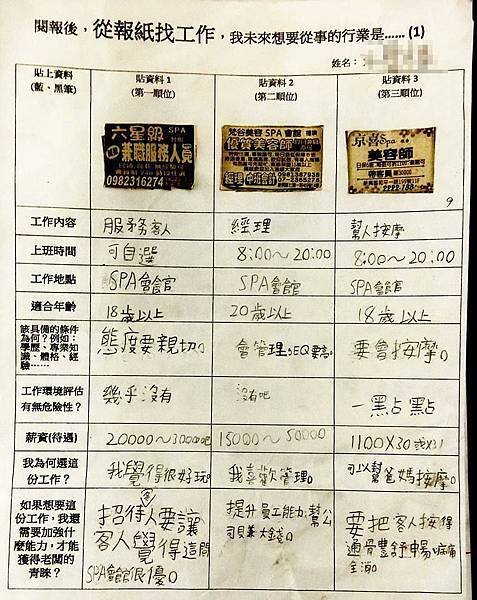 閱報後，從報紙找工作，我未來想要從事的行業是...... (1)
姓名：
貼上資料
(藍、黑筆)
貼資料 1
(第一順位)
貼資料 2
(第二順位)
貼資料 3
(第三順位)
六星級 SPA
兼職服務人員
0982316274
梵谷美容 SPA 會館
優質美容師
經理
京喜Spa
美容師
9
工作內容
服務客人
經理
幫人按摩
上班時間
可自選
8:00～20:00
8:00～20:00
工作地點
SPA會館官
SPA會館
SPA會館
適合年齡
18歲以上
20歲以上
18歲以上
該具備的條件
為何？例如：
學歷、專業知
識、體格、經
驗......
態度要親切。
會管理。EQ要高。
要會按摩。
工作環境評估
有無危險性？
幾乎沒有
沒有吧
一點點
薪資(待遇)
20000～30000吧
15000～50000
1100X30或X31
我為何選這
份工作？
我覺得很好玩。
我喜歡管理。
可以幫爸媽按摩。
如果想要這
份工作，我還
需要加強什
麼能力，才能
獲得老闆的
青睞？
招待客人要讓
客人覺得這間
SPA會館很優。
提升員工能力，幫公
司賺大錢。
要把客人按得
通體舒暢，痠痛
全消。